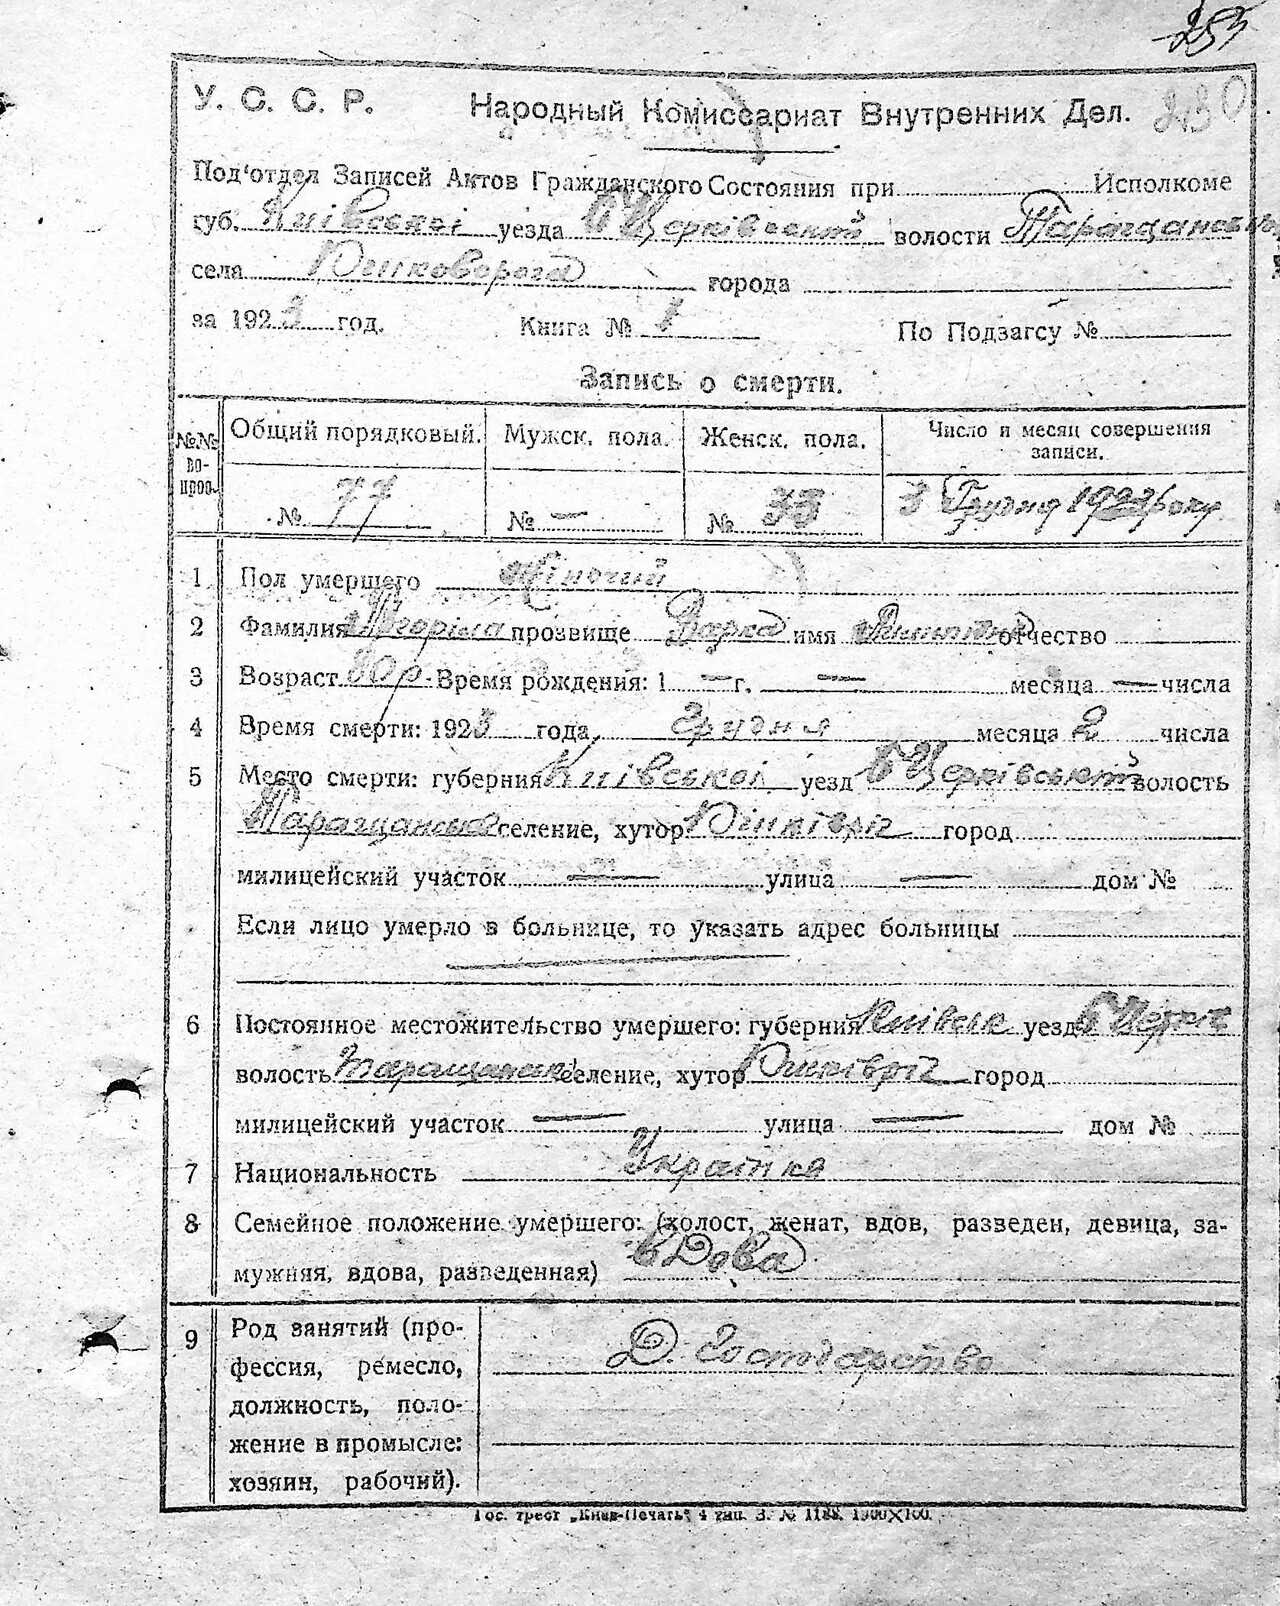 253
У. С. С. Р. Народный Комиссариат Внутренних Дел. 230
Под'отдел Записей Актов Гражданского Состояния при Исполкоме
губ. Київської уезда Б Церківської волости Таращанської
села города
за 1923 год. Книга № 1 По Подзагсу №
Запись о смерти.
№№ вопроо. Общий порядковый. Мужск. пола. Женск. пола. Число и месяц совершения записи.
№ 77 № — № 33 3 Грудня 1923 року
1 Пол умершего Жіночий
2 Фамилия прозвище Варка имя отчество
3 Возраст 80 р. Время рождения: 1 — г. — месяца — числа
4 Время смерти: 1923 года, Грудня месяца 2 числа
5 Место смерти: губерния Київської уезд Б Церківської волость
Таращанська селение, хутор город
милицейский участок — улица — дом №
Если лицо умерло в больнице, то указать адрес больницы
6 Постоянное местожительство умершего: губерния Київськ уезд Б Церків
волость Таращанська селение, хутор город
милицейский участок — улица — дом №
7 Национальность Українка
8 Семейное положение умершего: (холост, женат, вдов, разведен, девица, за-
мужняя, вдова, разведенная) вдова
9 Род занятий (про-
фессия, ремесло,
должность, поло-
жение в промысле:
хозяин, рабочий).
Д. Господарство
Гос. трест „Киев-Печать“ 4 тип. З. № 1188. 1900×100.